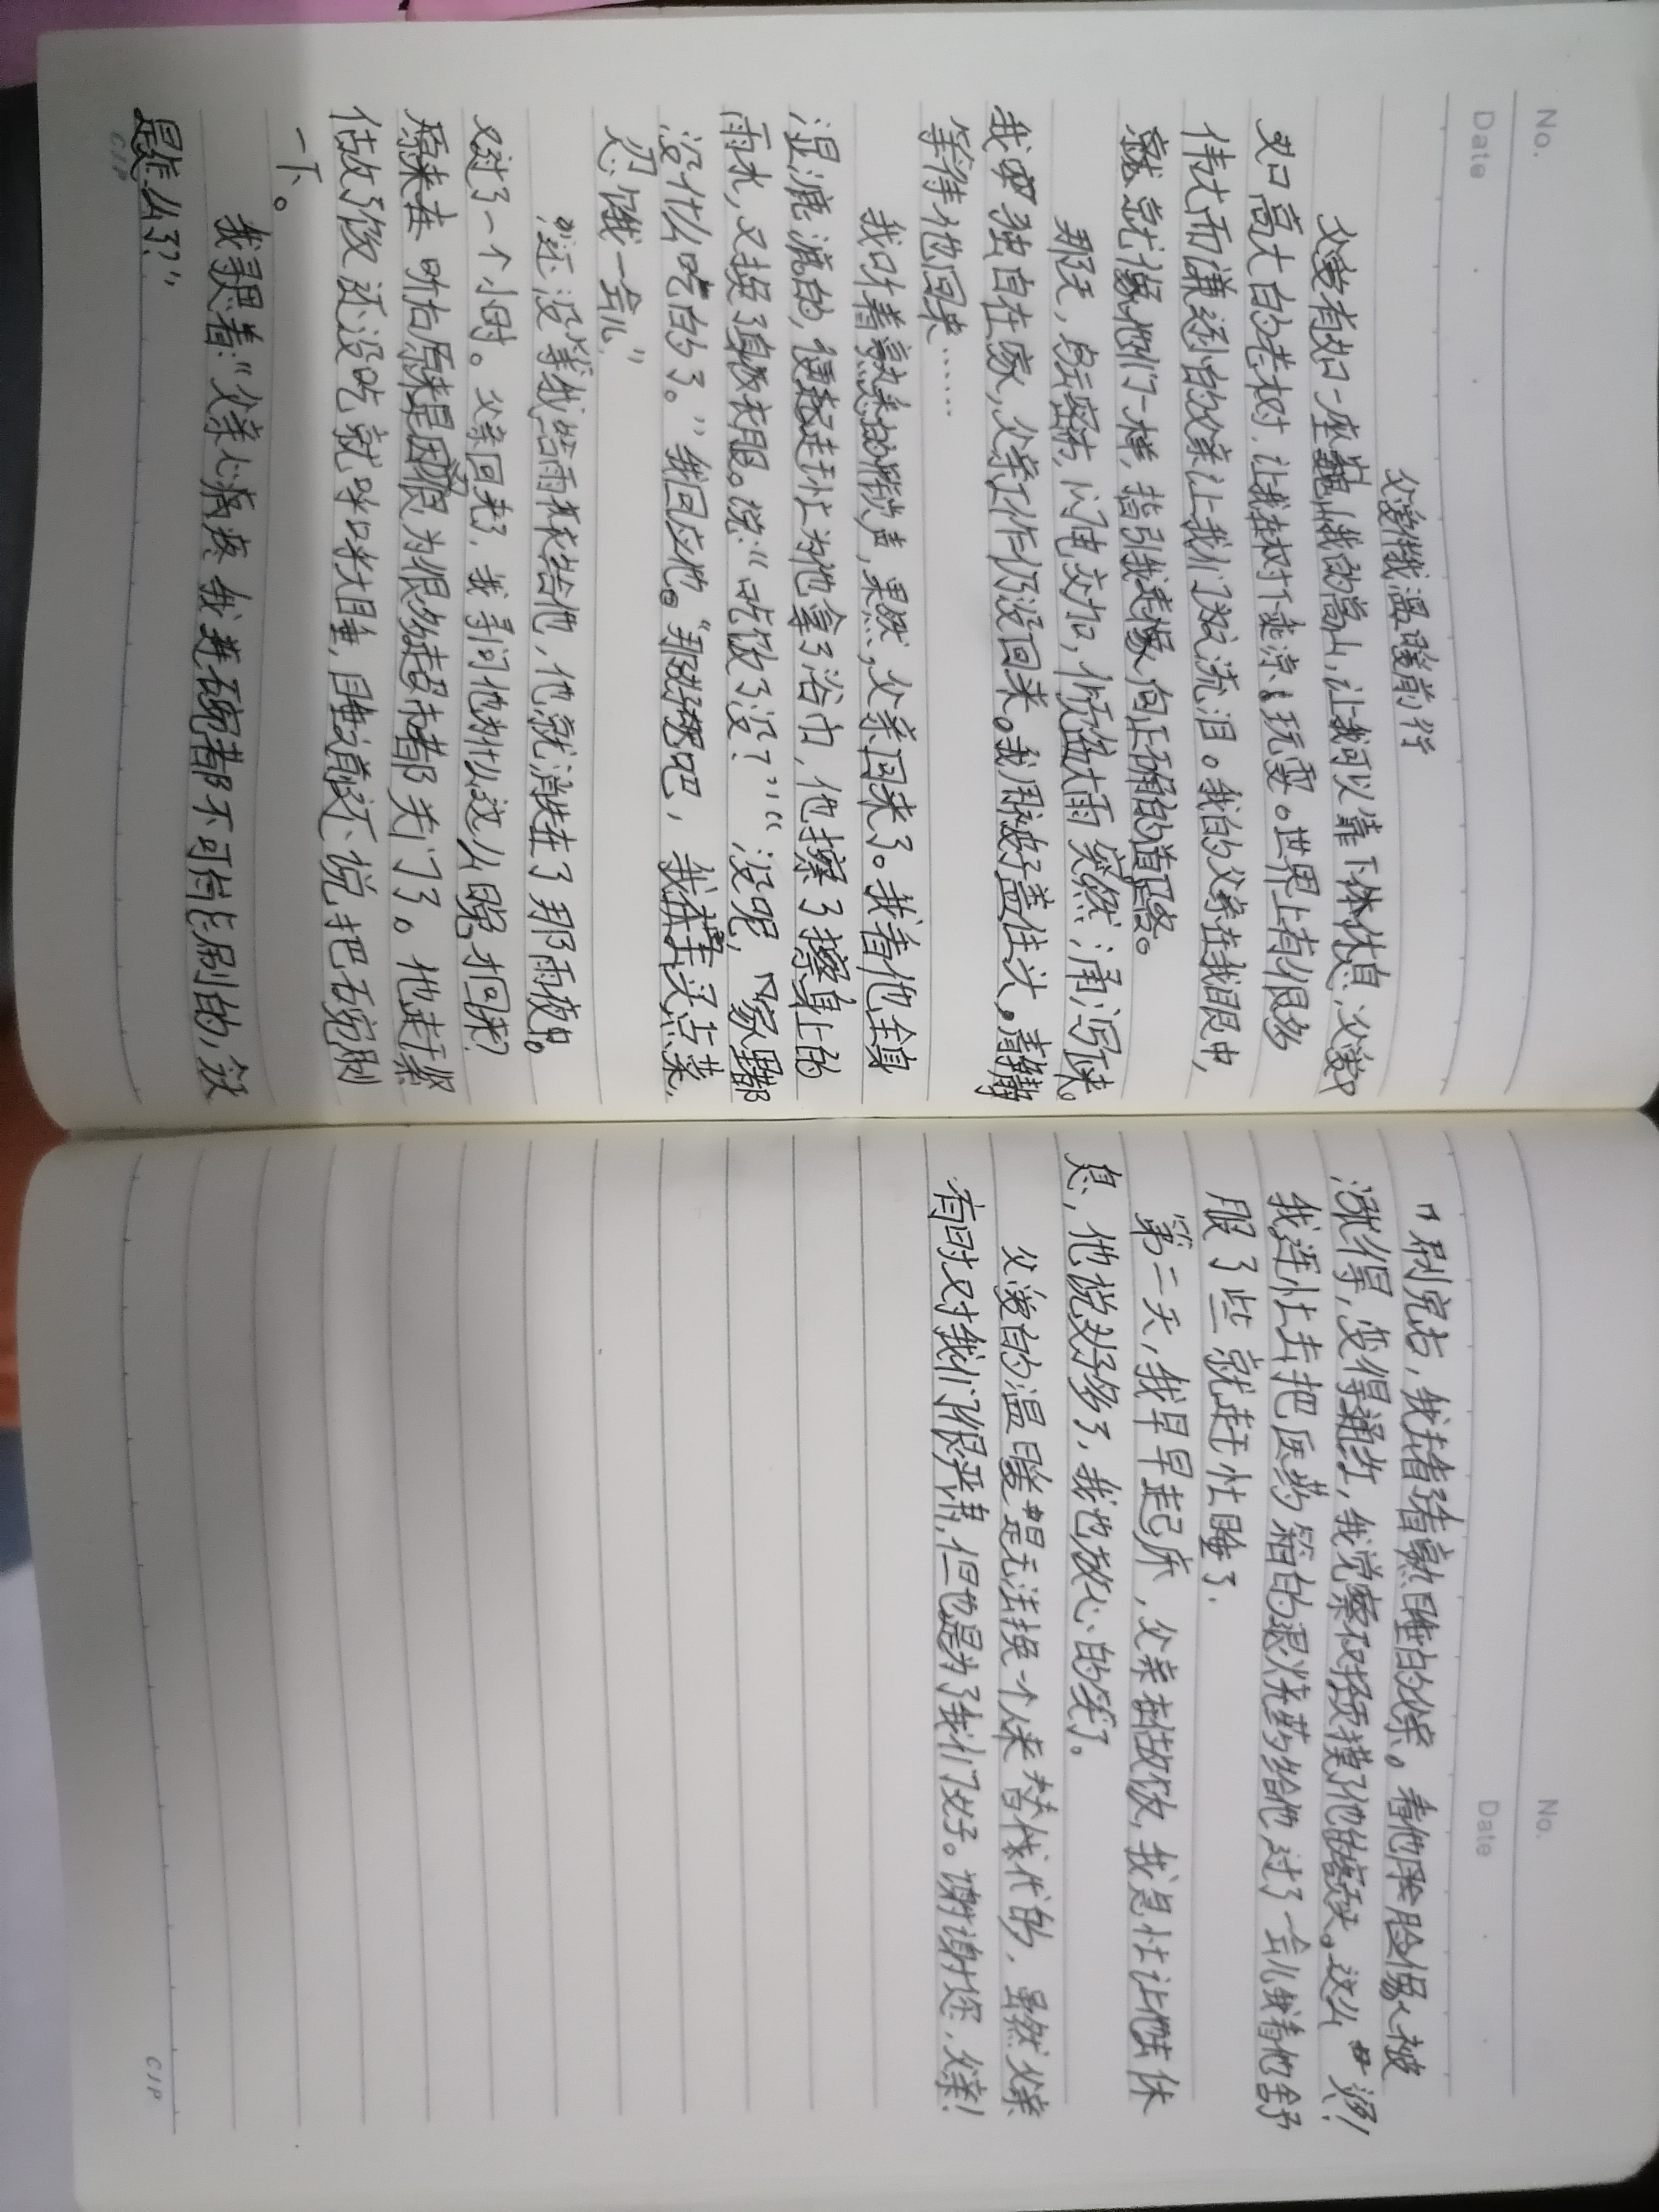 No.
Date
父爱伴我温暖前行
父爱有如一座巍峨的高山,让我可以靠下体休息,父爱又
如口高大的老树,让我在树下乘凉、玩耍。世界上有很多
伟大而谦逊的父亲让我们感激流泪。我的父亲在我眼中,
就就像他们一样,指引我走像向正确的道路。
那天,乌云密布,闪电交加,倾盆大雨突然涌泻下来。
我独自在家,父亲工作仍没回来。我用被子盖住头,静静
等待他回来……
我只听着熟悉的声,果然,父亲回来了。我看他全身
湿漉漉的,便赶忙为他拿了浴巾,他擦了擦身上的
雨水,又换了身衣服。说:“吃饭了没?”“没呢,家里都
没什么吃的了。”我回应他。“那好吧,我去买点菜,
忍饿一会儿”
还没等我给雨衣给他,他就消失在了那雨夜中。
过了一个小时。父亲回来了,我寻问他为什么这么晚才回来?
原来是因为很多超市都关门了。他赶紧
做了饭还没吃就呼呼大睡,睡道还不说把碗刷
一下。
我寻思着:“父亲心疼我连碗都不可能刷的,这
是怎么了?”
CJP
No.
Date
刷完后,我去看着熟睡的父亲。看他脸像被
涨得,变得通红,我觉察仅轻摸了他的额头。这么烫!
我连忙去把医药箱的退烧药给他,过了一会儿我看他舒
服了些就赶忙睡了.
第二天,我早早起床,父亲在做饭,我急忙让他去休
息,他说好多了,我也放心的笑了。
父爱的温暖是无法换一个人来替代的,虽然父亲
有时对我们很严肃,但也是为了我们好。谢谢您,父亲!
CJP